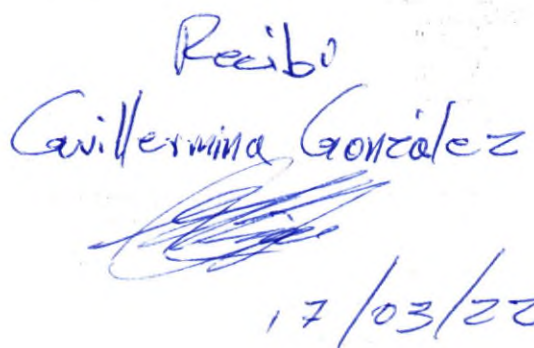 Recibí
Guillermina González
17/03/22